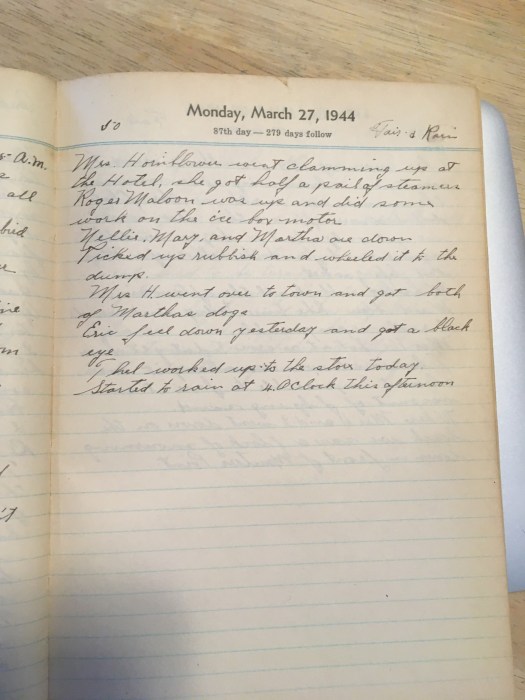 Monday, March 27, 1944
87th day — 279 days follow
50
Fair & Rain
Mrs. Hornblower went clamming up at
the Hotel, she got half a pail of steamers
Roger Maloon was up and did some
work on the ice box motor
Nellie, Mary, and Martha are down
Picked up rubbish and wheeled it to the
dump.
Mrs H. went over to town and got both
of Marthas dogs
Eric feel down yesterday and got a black
eye
Thel worked up to the store today.
Started to rain at 4. OClock this afternoon
a.m.
all